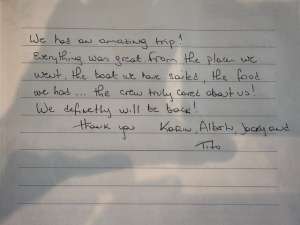 We had an amazing trip!
Everything was great from the places we
went, the boat we have sailed, the food
we had... the crew truly cared about us!
We definetly will be back!
Thank you Karin, Alberto, and
Tito